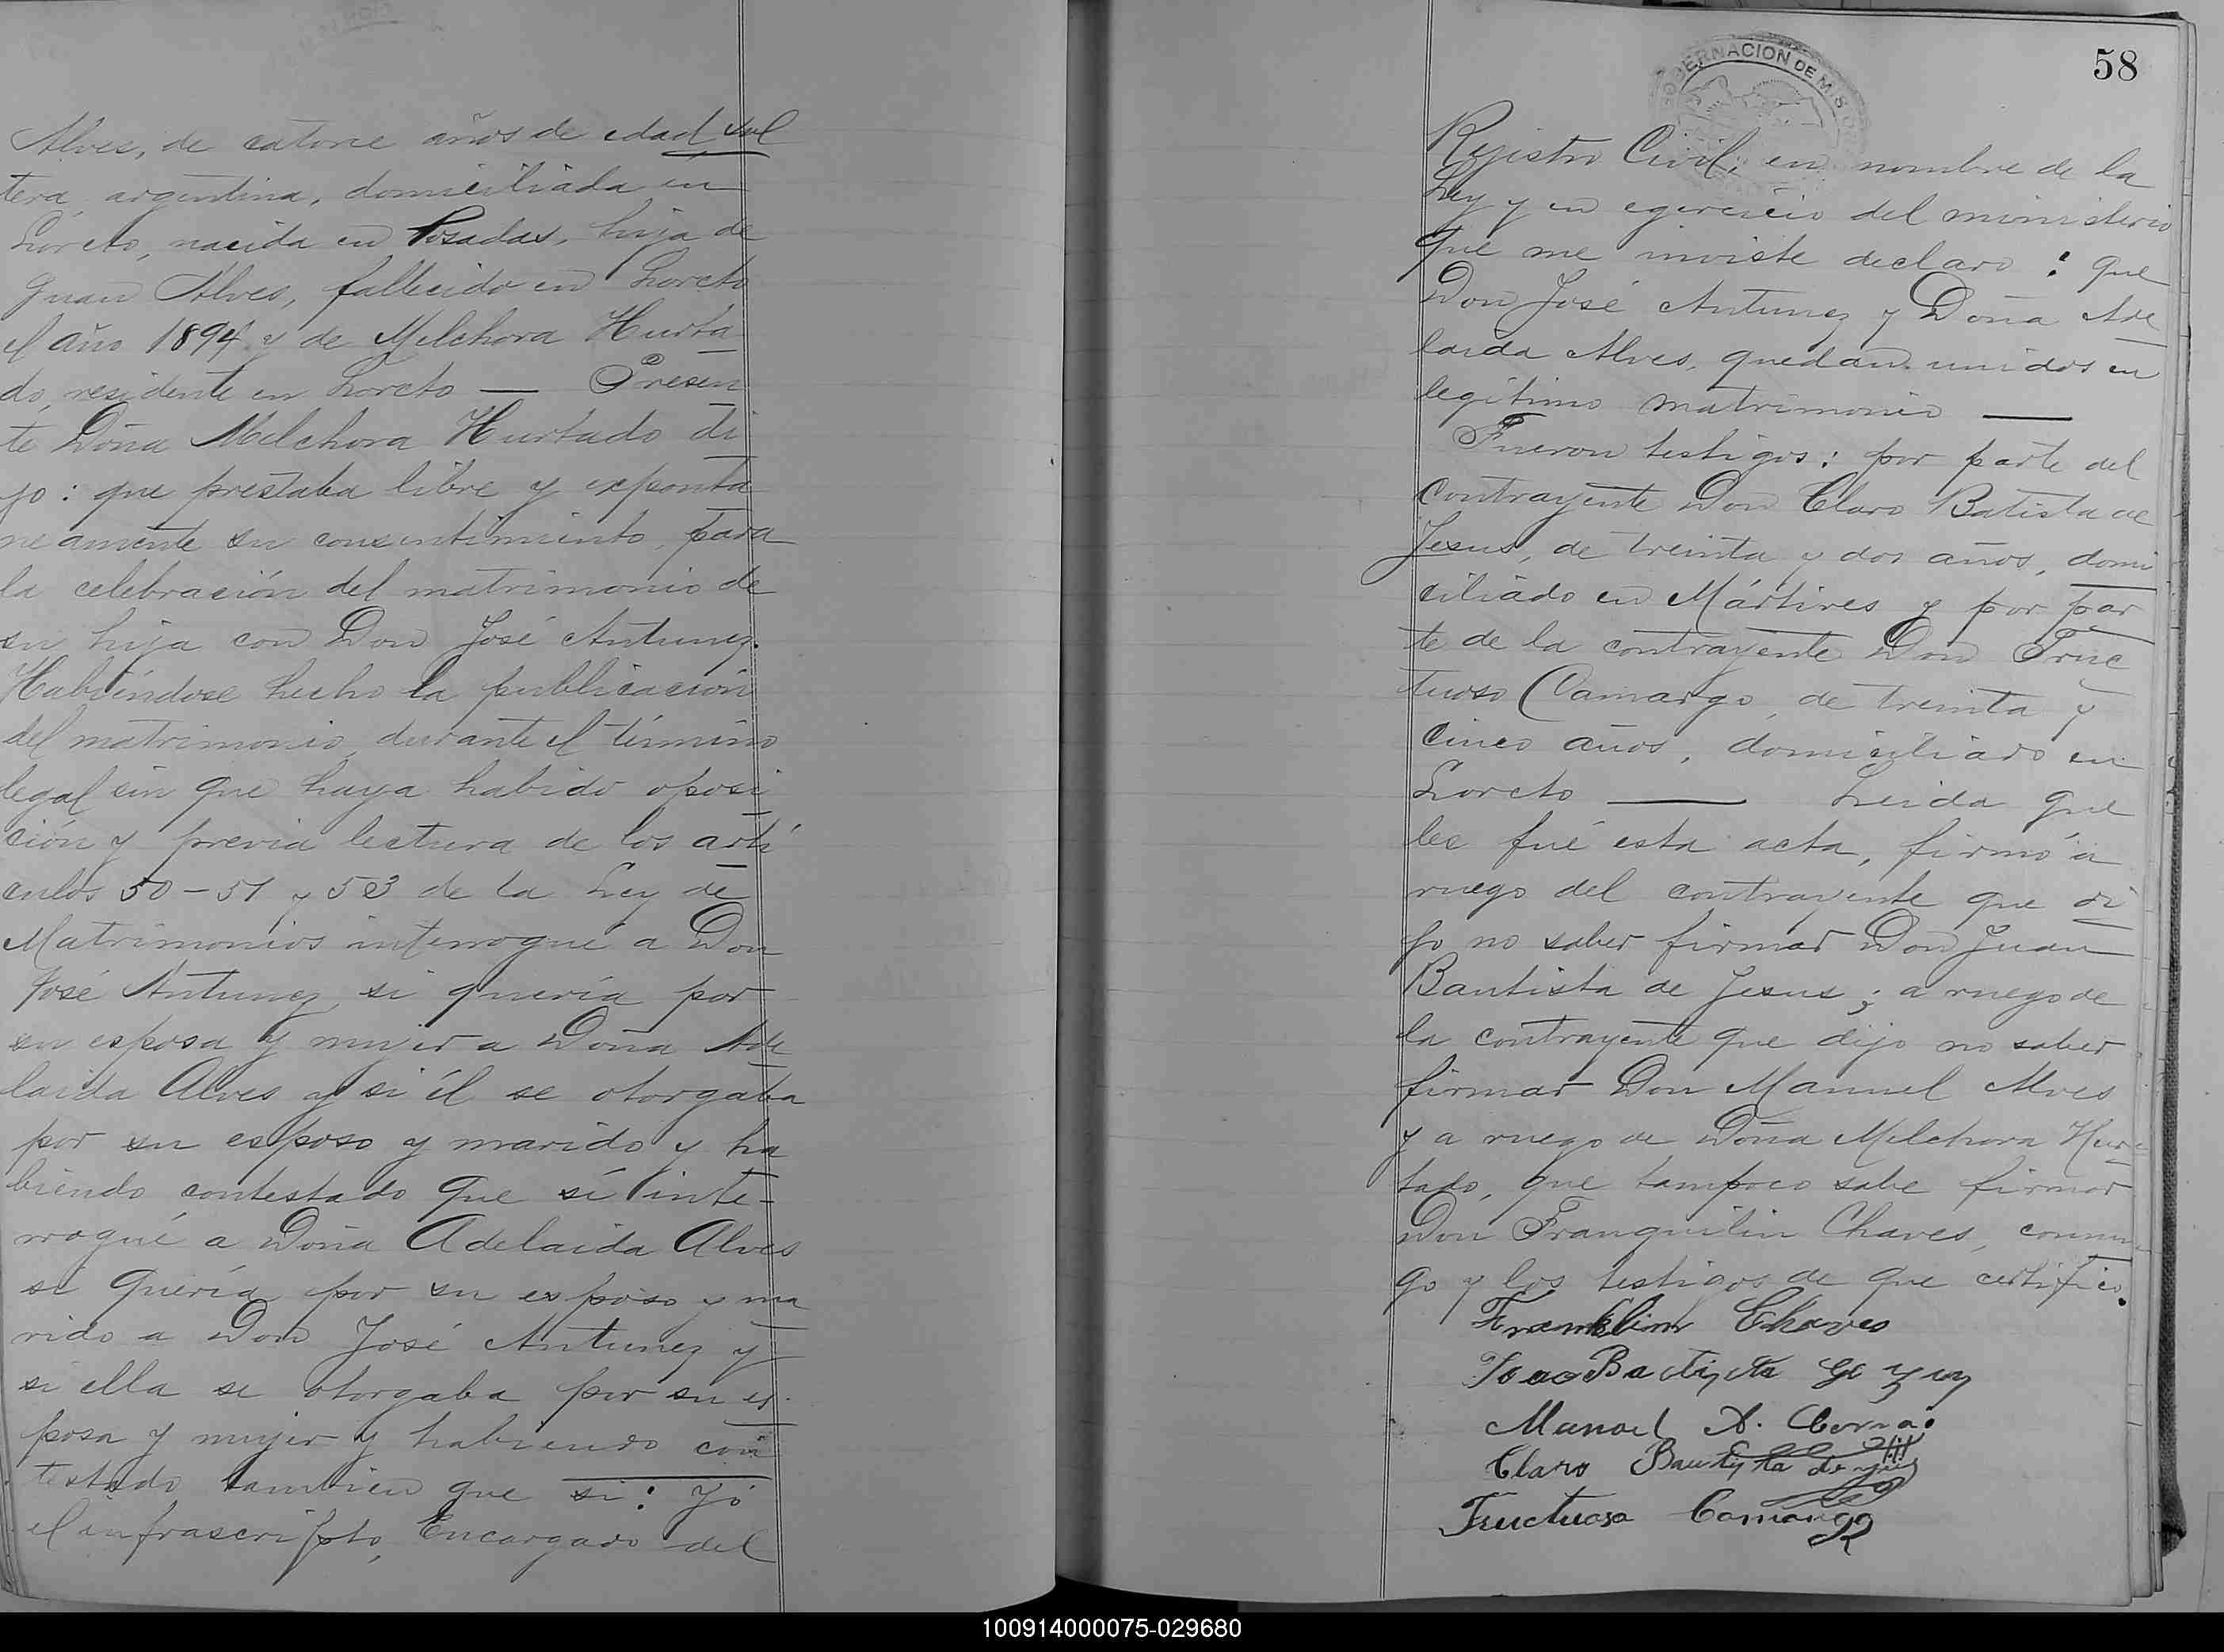 Alves, de catorce años de edad sol
tera, argentina, domiciliada en
Loreto, nacida en Posadas, hija de
Juan Alves, fallecido en Loreto
el año 1894 y de Melchora Hurta
do, residente en Loreto — Presen
te Doña Melchora Hurtado di
jo: que prestaba libre y exponta
neamente su consentimiento, para
la celebración del matrimonio de
su hija con Don José Antunez.
Habiéndose hecho la publicación
del matrimonio, durante el término
legal sin que haya habido oposi
ción y previa lectura de los artí
culos 50-51 y 53 de la Ley de
Matrimonios interrogué a Don
José Antunez, si quería por
su esposa y mujer a Doña Ade
laida Alves y si él se otorgaba
por su esposo y marido y ha
biendo contestado que sí inte-
rrogué a Doña Adelaida Alves
si quería por su esposo y ma
rido a Don José Antunez y
si ella se otorgaba por su es-
posa y mujer y habiendo con
testado tambien que si: Yó
el infrascripto, Encargado del
58
GOBERNACION DE MISIONES
Rejistro Civil, en nombre de la
Ley y en egercicio del ministerio
que me inviste declaro: que
Don José Antunez y Doña Ade
laida Alves, quedan unidos en
legítimo matrimonio —
Fueron testigos: por parte del
contrayente Don Claro Batista de
Jesus, de treinta y dos años, domi
ciliado en Mártires y por par
te de la contrayente Don Fruc
tuoso Camargo, de treinta y
cinco años, domiciliado en
Loreto — Leida que
les fué esta acta, firmó á
ruego del contrayente que di
jo no saber firmar Don Juan
Bautista de Jesus; a ruego de
la contrayente que dijo no saber
firmar Don Manuel Alves
y a ruego de Doña Melchora Hur
tado, que tampoco sabe firmar
Don Franquilin Chaves, conmi
go y los testigos de que certifico.
Franklim Chaves
Joao Bactista
Manoel A.
Claro Bautista de
Fructuoso Camargo
100914000075-029680